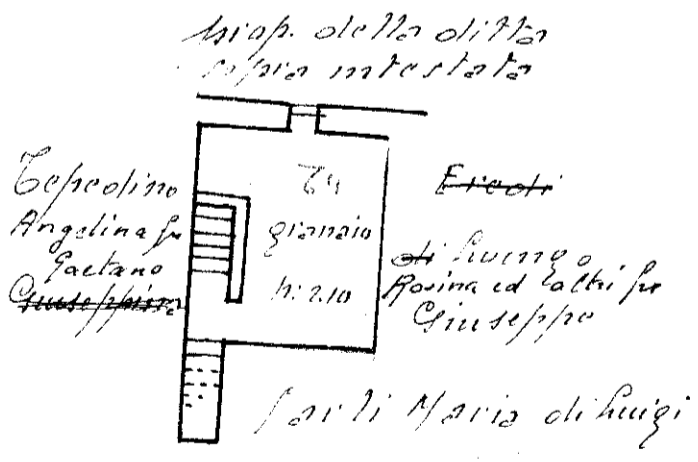 della ditta
sopra intestata
Tepedino
Angelina fu
Gaetano
Giuseppina
granaio
h: 2.10
Eredi
di Luongo
Rosina ed altri fu
Giuseppe
Maria di Luigi